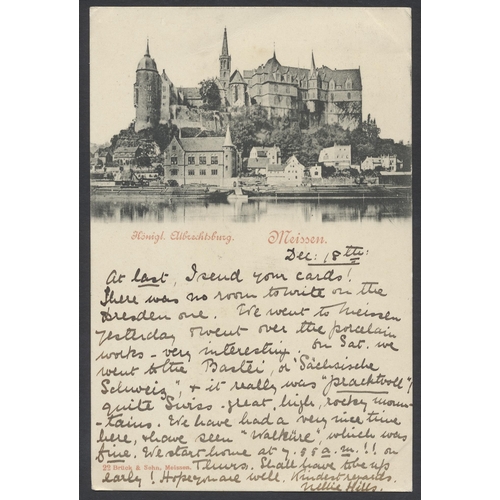 Königl. Albrechtsburg. Meissen.
Dec: 18th:
At last, I send your cards!
There was no room to write on the
Dresden one. We went to Meissen
yesterday & went over the porcelain
works - very interesting. on Sat. we
went to the Bastei, or "Sächsische
Schweiz" & it really was "prachtvoll"!
quite Swiss - great, high, rocky moun-
-tains. We have had a very nice time
here, & have seen "Walküre", which was
fine. We start home at 7.55 a.m.!! on
22 Brück & Sohn, Meissen. Thurs. Shall have to be up
early! Hope you are well. Kindest regards.
Nellie Hills.